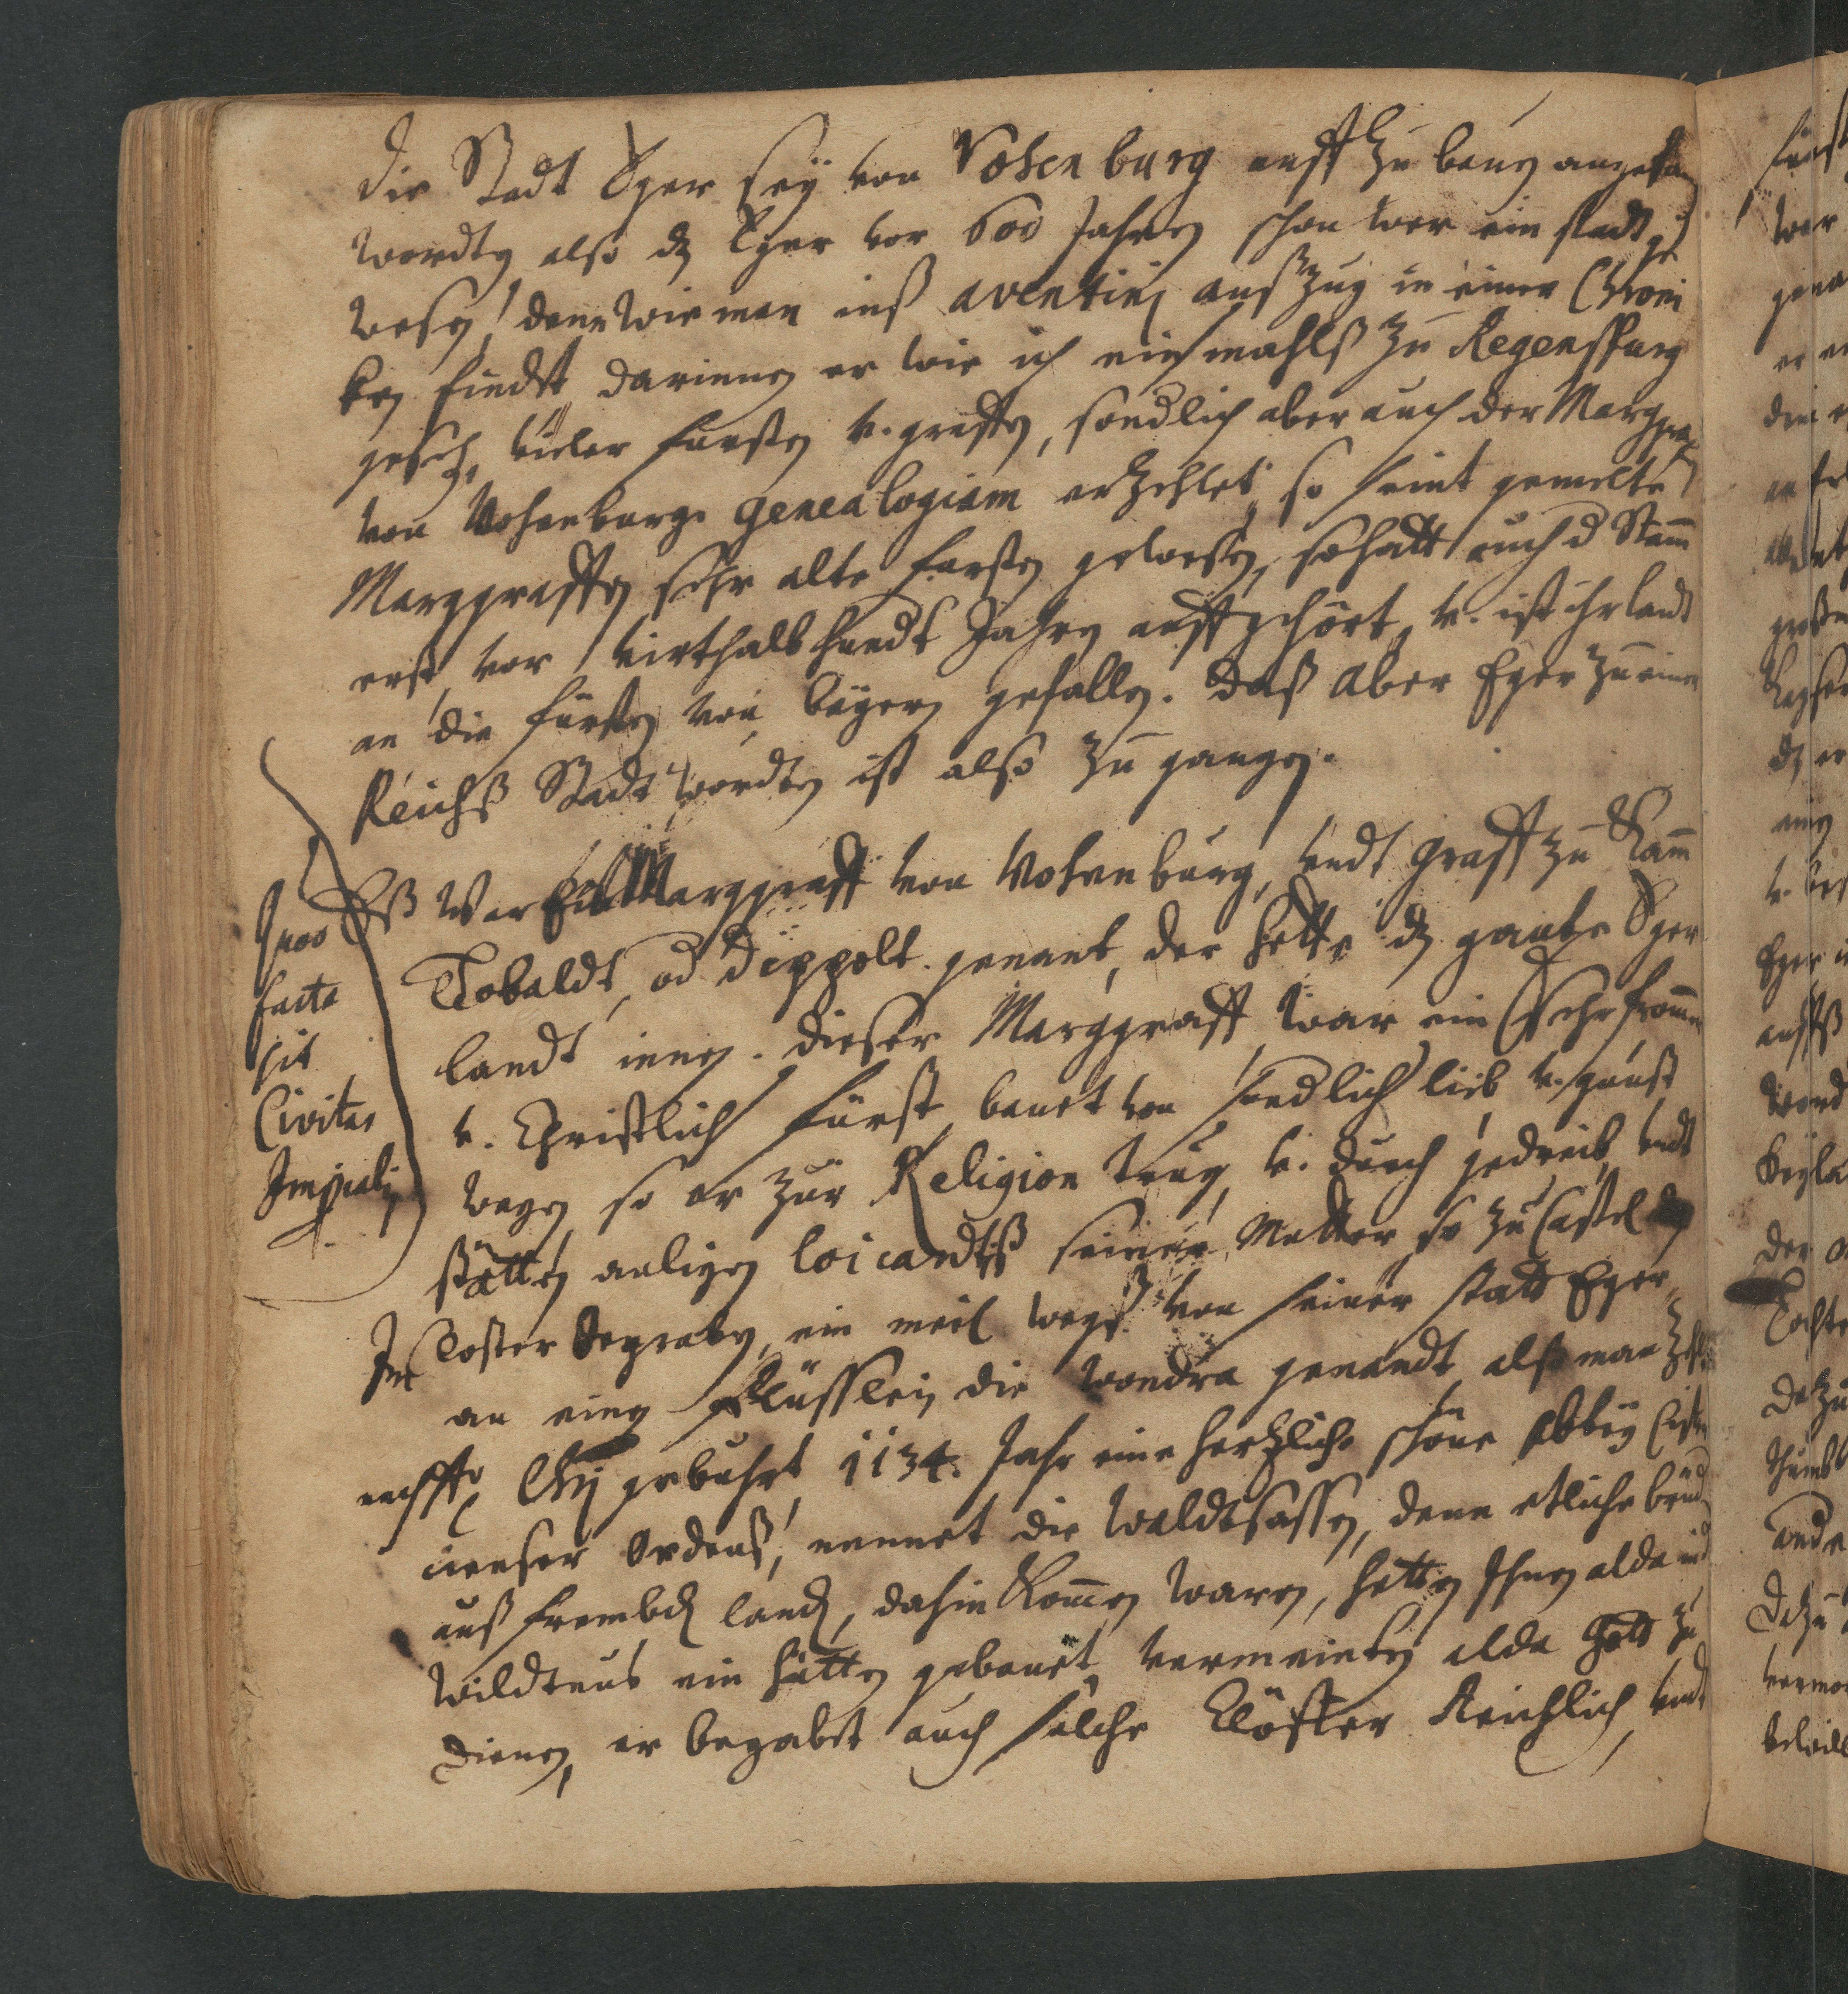 die Stadt Eger seÿ von Vohenburg auff zu bauen angefan
worden also dz Eger vor 600 Jahren schon war ein stadt ge
wesen, denn wie man inß Aventini außzug in einer Chroni
ken findet, darinnen er wie ich einmahlß zu Regenspurg
gesehen, vieler fürsten v. graffen, sondlich aber auch der Marggraf
von Vohenburg Genealogiam erzehlet, so seint gemelte
Marggraffen sehr alte fürsten gewesen, so hatt auch d Stam
erst vor virthalb hundt Jahren auffgehört, v. ist ihr landt
an die fürsten von baÿern gefallen. Daß aber Eger zu einer
Reichß Stadt worden ist also zu gangen.
Quo
facta
sit
Civitas
Imperialis
Eß War Ein Marggraff von Vohenburg, undt Graff zu Kam
Tobaldt, od Dippolt genant, der hette dz gantze Eger
landt innen. dieser Marggraff war ein sehr fromer
v. Christlich fürst, bauet von sondlich lieb v. gunst
wegen so er zur Religion trug, v. durch getreib undt
stätten anligen seiner Mutter so zu Castel
Im Closter begraben, ein meil wegß von seiner statt Eger,
an einen flüsslein die Wondra genandt alß man zehlt
nach Christi gebuhrt 1134. Jahr eine hertzliche schöne Abbteÿ Cister
cienser Ordenß, nennet die Waldtsassen, denn etliche brüd
auß frembden landen, dahin komen waren, hetten Ihnen alda in d
Wildtnus ein hütten gebauet, vermeinten alda Gott zu
dienen, er begabet auch solche Klöster Reichlich undt